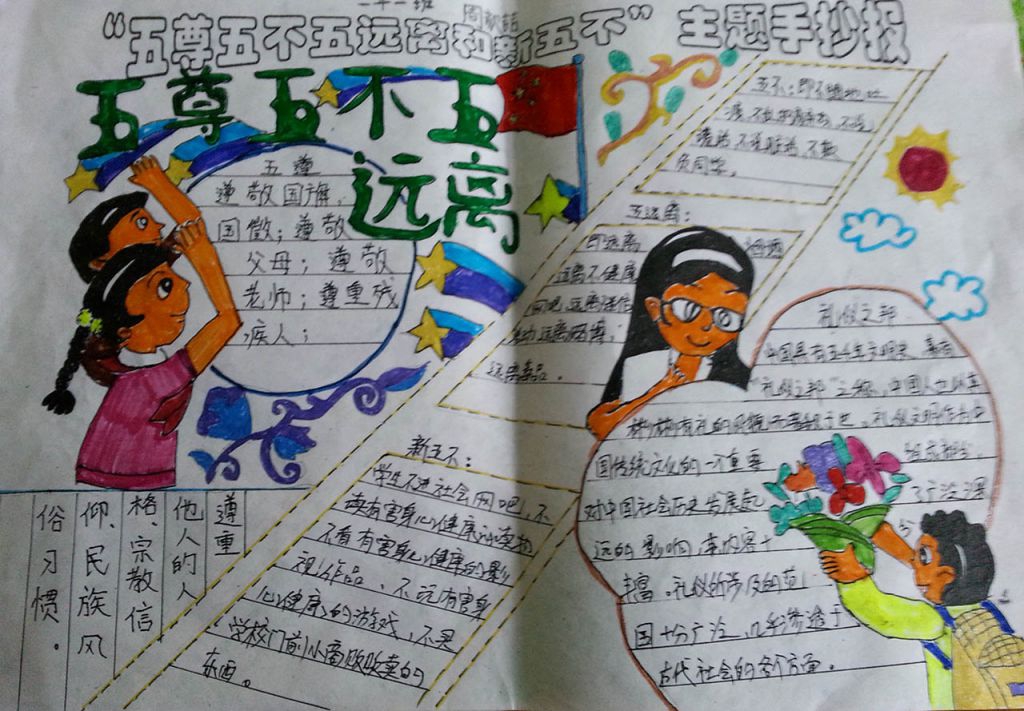 二十一班
“五尊五不五远离和新五不”主题手抄报
五尊五不五
远离
五遵
遵敬国旗,
国徽;遵敬
父母;遵敬
老师;遵重残
疾人;
遵重
他人的人
格、宗教信
仰、民族风
俗习惯。
五不:即不随地吐
负同学。
五远离:
即远离
远离不健康
远离毒品。
新五不:
学生不进社会网吧,不
读有害身心健康的读物
不看有害身心健康的影
视作品、不玩有害身
心健康的游戏,不买
学校门前小商贩贩卖的
东西。
礼仪之邦
中国具有五千年文明史,素有
“礼仪之邦”之称,中国人也以其
彬彬有礼的风貌而著称于世。礼仪文明作为中
国传统文化的一个重要 组成部分,
对中国社会历史发展起 了广泛深
远的影响,其内容十
丰富。礼仪所涉及的范
围十分广泛,几乎渗透于
古代社会的各个方面。